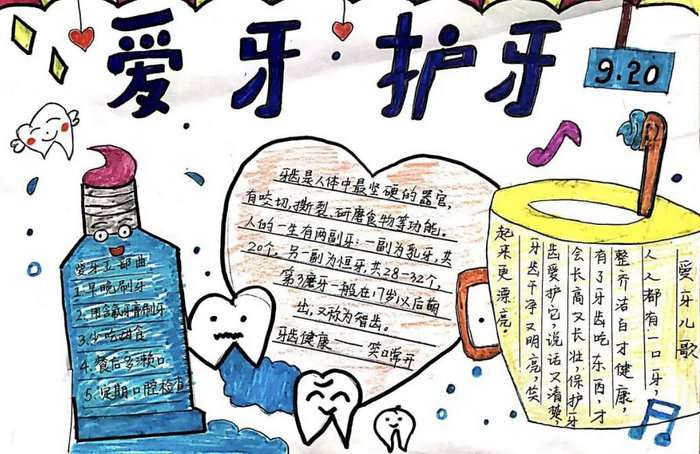 爱牙护牙
9.20
爱牙五部曲
1.早晚刷牙
2.用含氟牙膏刷牙
3.少吃甜食
4.餐后多漱口
5.定期口腔检查
牙齿是人体中最坚硬的器官,
有咬切、撕裂、研磨食物等功能。
人的一生有两副牙:一副为乳牙,共
20个,另一副为恒牙,共28-32个,
第3磨牙一般在17岁以后萌
出,又称为智齿。
牙齿健康——笑口常开
爱牙儿歌
人人都有一口牙,
整齐洁白才健康,
有了牙齿吃东西,才
会长高又长壮,保护牙
齿爱护它,说话又清楚,
牙齿干净又明亮,笑
起来更漂亮。